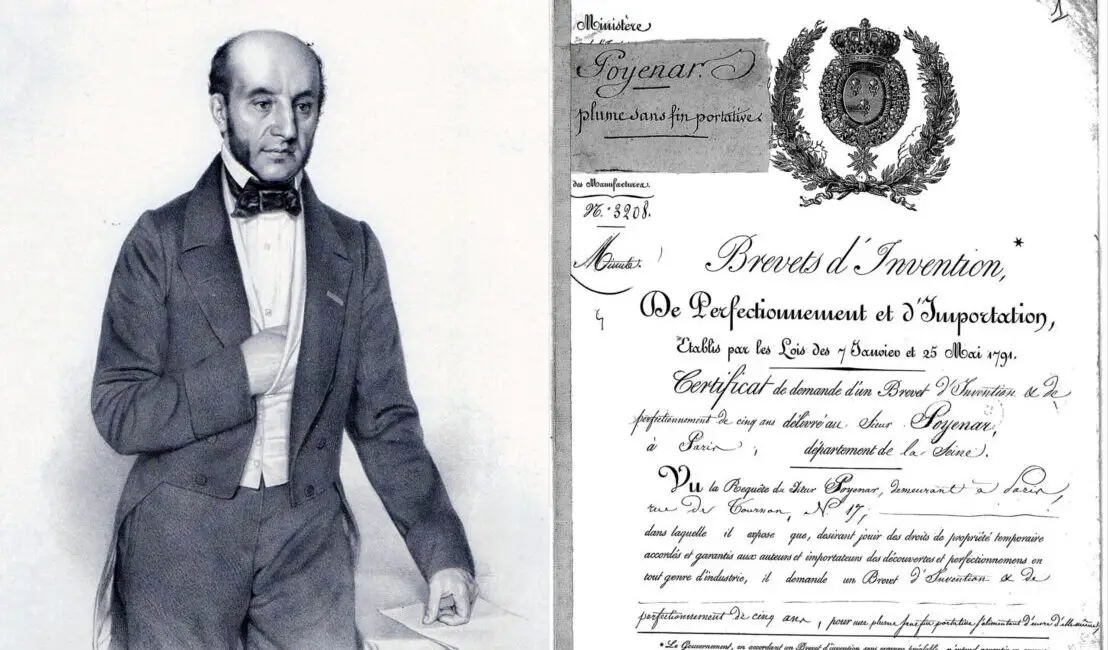 1
Ministère
Poyenar.
plume sans fin portative.
des Manufactures.
N.º 3208.
Minute.
Brevets d'Invention,*
De Perfectionnement et d'Importation,
Etablis par les Lois des 7 Janvier et 25 Mai 1791.
Certificat de demande d'un Brevet d'Invention & de
perfectionnement de cinq ans délivré au Sieur Poyenar,
à Paris, département de la Seine.
Vu la Requête du Sieur Poyenar, demeurant à Paris,
rue de Tournon, Nº 17,
dans laquelle il expose que, desirant jouir des droits de propriété temporaire
accordés et garantis aux auteurs et importateurs des découvertes et perfectionnemens en
tout genre d'industrie, il demande un Brevet d'Invention & de
perfectionnement de cinq ans, pour une plume sans fin portative s'alimentant d'encre d'elle-même,
* Le Gouvernement, en accordant un Brevet d'invention sans examen préalable, n'entend garantir en